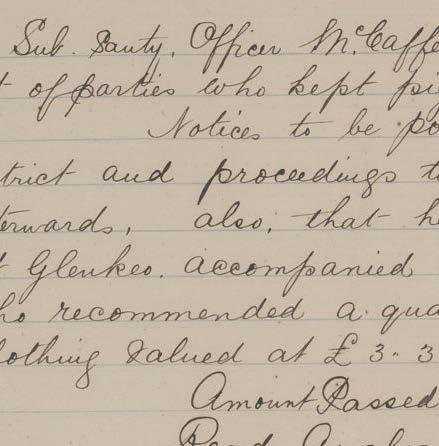 Sub. Santy. Officer McCaffe
t of parties who kept pi
Notices to be po
trict and proceedings t
terwards, also, that h
t Glenkeo. accompanied
ho recommended a qua
lothing valued at £ 3.. 3
Amount Passed
Read